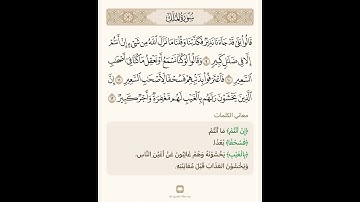 سُورَةُ المُلْكِ
قَالُوا۟ بَلَىٰ قَدْ جَآءَنَا نَذِيرٌ فَكَذَّبْنَا وَقُلْنَا مَا نَزَّلَ ٱللَّهُ مِن شَىْءٍ إِنْ أَنتُمْ
إِلَّا فِى ضَلَٰلٍ كَبِيرٍ ٩ وَقَالُوا۟ لَوْ كُنَّا نَسْمَعُ أَوْ نَعْقِلُ مَا كُنَّا فِىٓ أَصْحَٰبِ
ٱلسَّعِيرِ ١٠ فَٱعْتَرَفُوا۟ بِذَنۢبِهِمْ فَسُحْقًا لِّأَصْحَٰبِ ٱلسَّعِيرِ ١١ إِنَّ
ٱلَّذِينَ يَخْشَوْنَ رَبَّهُم بِٱلْغَيْبِ لَهُم مَّغْفِرَةٌ وَأَجْرٌ كَبِيرٌ ١٢
معاني الكلمات
﴿إِنْ أَنتُمْ﴾ مَا أَنْتُمْ
﴿فَسُحْقًا﴾ بُعْدًا.
﴿بِالْغَيْبِ﴾ يَخْشَوْنَهُ وَهُمْ غَائِبُونَ عَنْ أَعْيُنِ النَّاسِ،
وَيَخْشَوْنَ العَذَابَ قَبْلَ مُعَايَنَتِهِ.